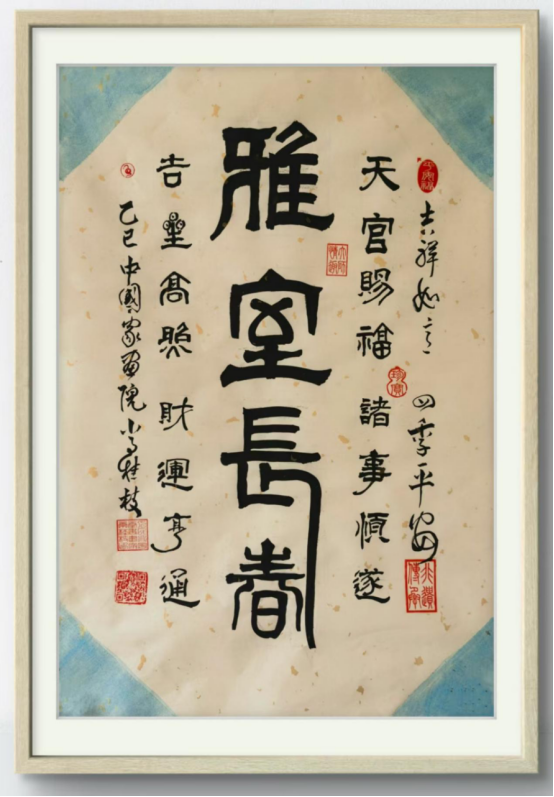 吉祥如意 四季平安
天官賜福 諸事順遂
雅室長春
吉星高照 財運亨通
乙巳中國家画院 桂枝